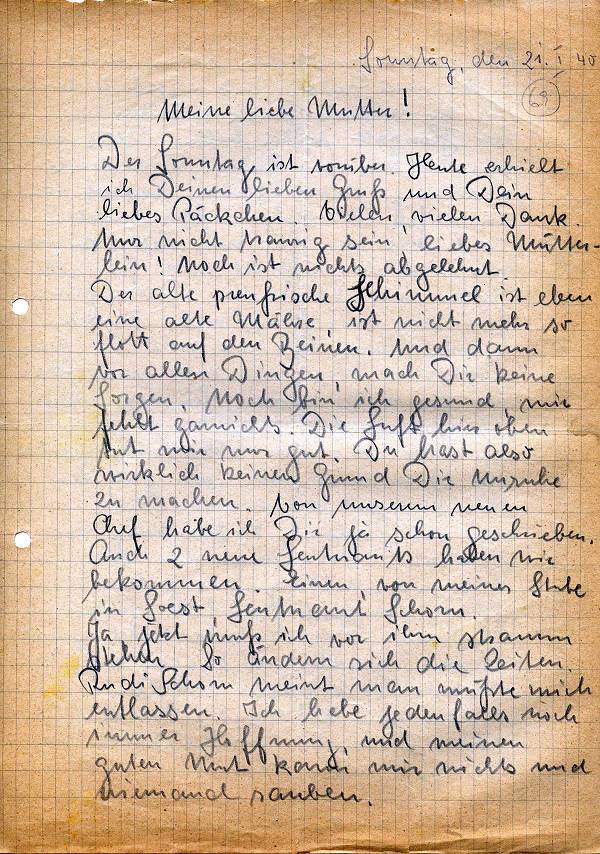 Sonntag, den 21. I 40
68
Meine liebe Mutter!
Der Sonntag ist vorüber. Heute erhielt
ich Deinen lieben Gruß und Dein
liebes Päckchen. Vielen, vielen Dank.
Nur nicht traurig sein, liebes Mütter-
lein! Noch ist nichts abgelehnt.
Der alte preußische Schimmel ist eben
eine alte Mähre, ist nicht mehr so
flott auf den Beinen. Und dann
vor allen Dingen, mach Dir keine
Sorgen, noch bin ich gesund, mir
fehlt garnichts. Die Luft hier oben
tut mir nur gut. Du hast also
wirklich keinen Grund Dir Unruhe
zu machen. Von unserem neuen
Chef habe ich Dir ja schon geschrieben.
Auch 2 neue Leutnants haben wir
bekommen. Einen, von meiner Stube
in Soest, Leutnant Schorn.
Ja jetzt muß ich vor ihm stramm
stehen. So ändern sich die Zeiten.
Rudi Schorn meint man müßte mich
entlassen. Ich habe jedenfalls noch
immer Hoffnung, und meinen
guten Mut kann mir nichts und
niemand rauben.